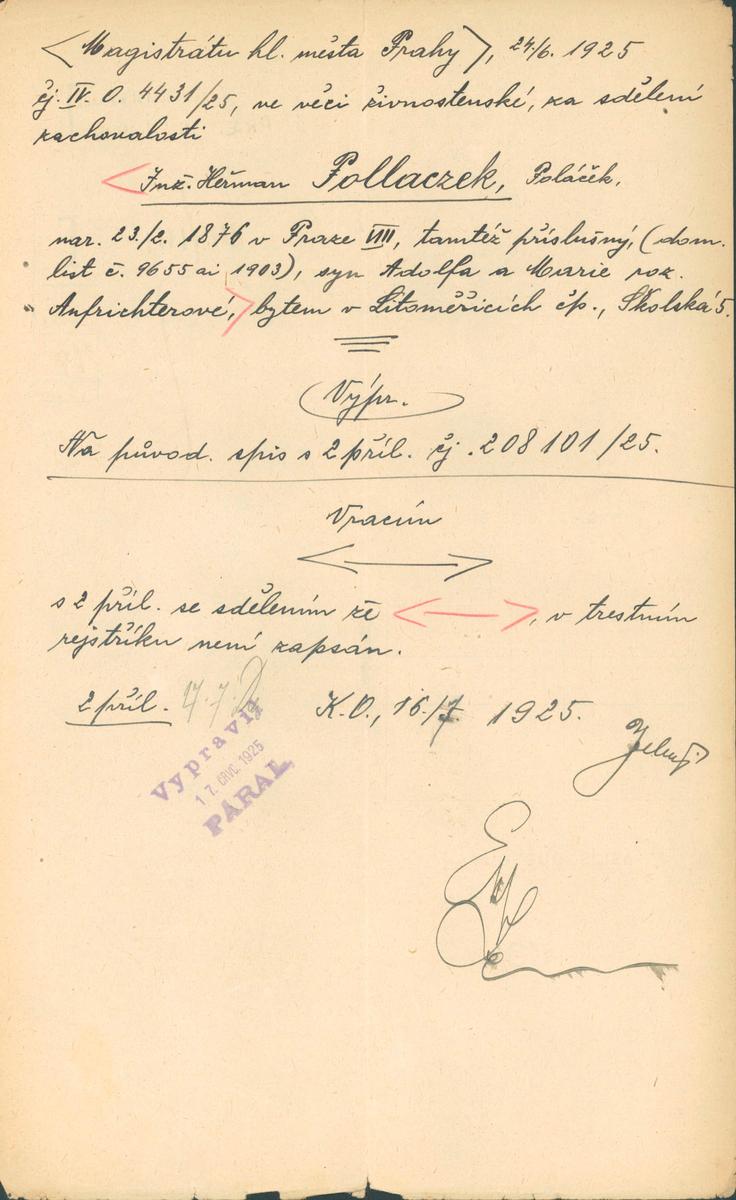 <Magistrátu hl. města Prahy>, 24/6. 1925
čj. IV. O. 4431/25, ve věci živnostenské, za sdělení
zachovalosti
Inž. Heřman Pollaczek, Poláček,
nar. 23./2. 1876 v Praze VIII, tamtéž příslušný, (dom.
list č. 9655 ai 1903), syn Adolfa a Marie roz.
Aufrichterové, bytem v Litoměřicích čp., Školská 5.
Výpr.
Na původ. spis s 2 příl. čj. 208101/25.
Vracím
s 2 příl. se sdělením že , v trestním
rejstříku není zapsán.
2 příl. 17.7. K.O., 16/7. 1925.
Vypravil
17. ČRVC. 1925
PARAL